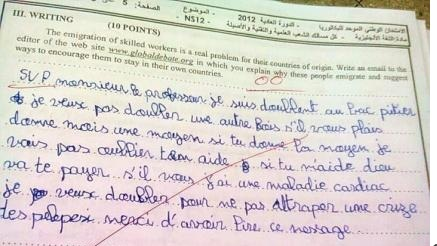 الصفحة: 5 - الموضوع - الدورة العادية 2012 الامتحان الوطني الموحد للبكالوريا
NS12 - مادة: اللغة الإنجليزية - كل مسالك الشعب العلمية والتقنية والأصيلة
III. WRITING (10 POINTS)
The emigration of skilled workers is a real problem for their countries of origin. Write an email to the
editor of the web site www.globaldebate.org in which you explain why these people emigrate and suggest
ways to encourage them to stay in their own countries.
S.V.P monsieur le professeur je suis doublent au bac pitier
je veux pas doubler une autre fois s'il vous plais
donne mois une moyen si tu donne la moyen je
vais pas oublier ton aide si tu m'aide dieu
va te payer. s'il vous j'ai une maladie cardiac
je veux doubler pour ne pas attraper une crise
merci d'avoir lire ce message